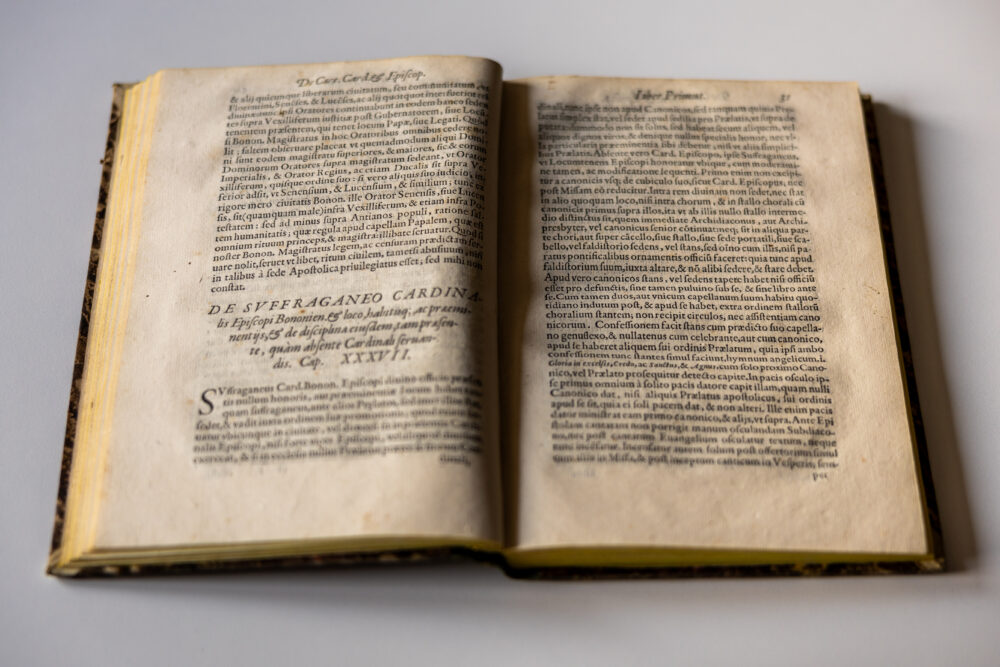 De Cær. Card.& Episcop.
& alij quicunque liberarum ciuitatum, seu communitatum
Florentini, Senēses, & Lucēses, ac alij quotquot inter fuerint
Oratores continuabunt in eodem banco sedere
supra Vexilliferum iustitiæ post Gubernatorem, siue Locū
tenentem præsentem, qui tenet locum Papæ, siue Legati. Quod
si Bonon. Magistratus in hoc Oratoribus omnibus cedere no-
lit; saltem obseruare placeat vt quemadmodum aliqui Domi-
ni sunt eodem magistratu superiores, & maiores, sic & eorum
Dominorum Oratores supra magistratum sedeant, vt Orator
Imperialis, & Orator Regius, ac etiam Ducalis sit supra Ve-
xilliferum, quisque ordine suo: si vero aliquis suo iudicio, in-
ferior adsit, vt Senensium, & Lucensium, & similium; tunc ex
rigore mero ciuitatis Bonon. ille Orator Senensis, siue Lucen
sis, sit (quamquam male) infra Vexilliferum, & etiam infra Po-
testatem: sed ad minus supra Antianos populi, ratione sal-
tem humanitatis; quæ regula apud capellam Papalem, quæ est
omnium rituum princeps, & magistra illibate seruatur. Quod si
noster Bonon. Magistratus legem, ac censuram prædictam ser-
uare nolit, seruet vt libet, ritum ciuilem, tametsi abusiuum, nisi
in talibus à sede Apostolica priuilegiatus esset; sed mihi non
constat.
DE SVFFRAGANEO CARDINA-
lis Episcopi Bononien.& loco, habitu, ac præemi-
nentijs, & de disciplina eiusdem, tam præsen-
te, quàm absente Cardinali seruan-
dis. Cap. XXXVII.
SVffraganeus Card. Bonon. Episcopi diuino officio præsen
tis nullum honoris, aut præeminentiæ locum habet
quam suffraganeus, ante alios Prælatos, sed inter illos
sedet, & vadit iuxta ordinem suæ promotionis:
vtitur vbicunque in ciuitate, vel diœcesi
nalis Episcopi, nisi forte vices Episcopi,
exerceat, & si in ecclesia
Liber Primus. 51
dinali, tunc ipse non apud Canonicos, sed tanquam quiuis Præ-
latus simplex stat, vel sedet apud sedilia pro Prælatis, vt supra de
putata: dummodo non sit solus, sed habeat secum aliquem, vel
aliquos dignæ viros, & in hoc casu nullus specialis honor, nec vl-
la particularis præeminentia sibi debetur, nisi vt alijs simplici-
bus Prælatis. Absente vero Card. Episcopo, ipse Suffraganeus,
vt Locumtenens Episcopi honoretur vbique, cum moderami-
ne tamen, ac modificatione sequenti. Primo enim non excipi-
tur a canonicis vsq; de cubiculo suo, sicut Card. Episcopus, nec
post Missam eò reducitur. Intra rem diuinam non sedet, nec stat
in alio quoquam loco, nisi intra chorum, & in stallo chorali cū
canonicis primus supra illos, ita vt ab illis nullo stallo interme-
dio distinctus sit, quem immediate Archidiaconus, aut Archi-
presbyter, vel canonicus senior cōtinuat meq; sit in aliqua par-
te chori, aut super cācello, siue stallo, siue sede portatili, siue sca-
bello, vel faldistorio sedens, vel stans, sed ōfno cum illis, nisi pa-
ratus pontificalibus ornamentis officiū faceret; quia tunc apud
faldistorium suum, iuxta altare, & nō alibi sedere, & stare debet.
Apud vero canonicos stans, vel sedens tapete habet nisi officiū
esset pro defunctis, sine tamen puluino sub se, & sine libro ante
se. Cum tamen duos, aut vnicum capellanum suum habitu quo-
tidiano indutum post, & apud se habet, extra ordinem stallorū
choralium stantem; non recipit circulos, nec assistentiam cano
nicorum. Confessionem facit stans cum prædicto suo capella-
no genuflexo, & nullatenus cum celebrante, aut cum canonico,
apud se haberet aliquem sui ordinis Prælatum, quia ipsi ambo
confessionem tunc stantes simul faciunt, hymnum angelicum. i.
Gloria in excelsis, Credo, ac Sanctus, & Agnus. cum solo proximo Cano-
nico, vel Prælato prosequitur detecto capite. In pacis osculo ip-
se primus omnium à solito pacis datore capit illam, quam nulli
Canonico dat, nisi aliquis Prælatus apostolicus, sui ordinis
apud se sit, qui ei soli pacem dat, & non alteri. Ille enim pacis
dator ministrat eam primo canonico, & alijs, vt supra. Ante Epi
stolam cantatam non porrigit manum osculandam Subdiaco-
no, nec post cantatum Euangelium osculatur textum, neque
tunc incensatur. Incensatur autem solum post offertorium simul
cum illis in Missa, & post inceptum canticum in Vesperis, sem-
per